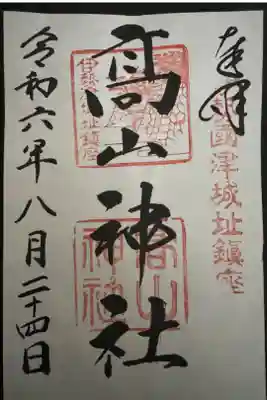 奉拝
國津城址鎮座
髙山神社
高山神社
令和六年八月二十四日